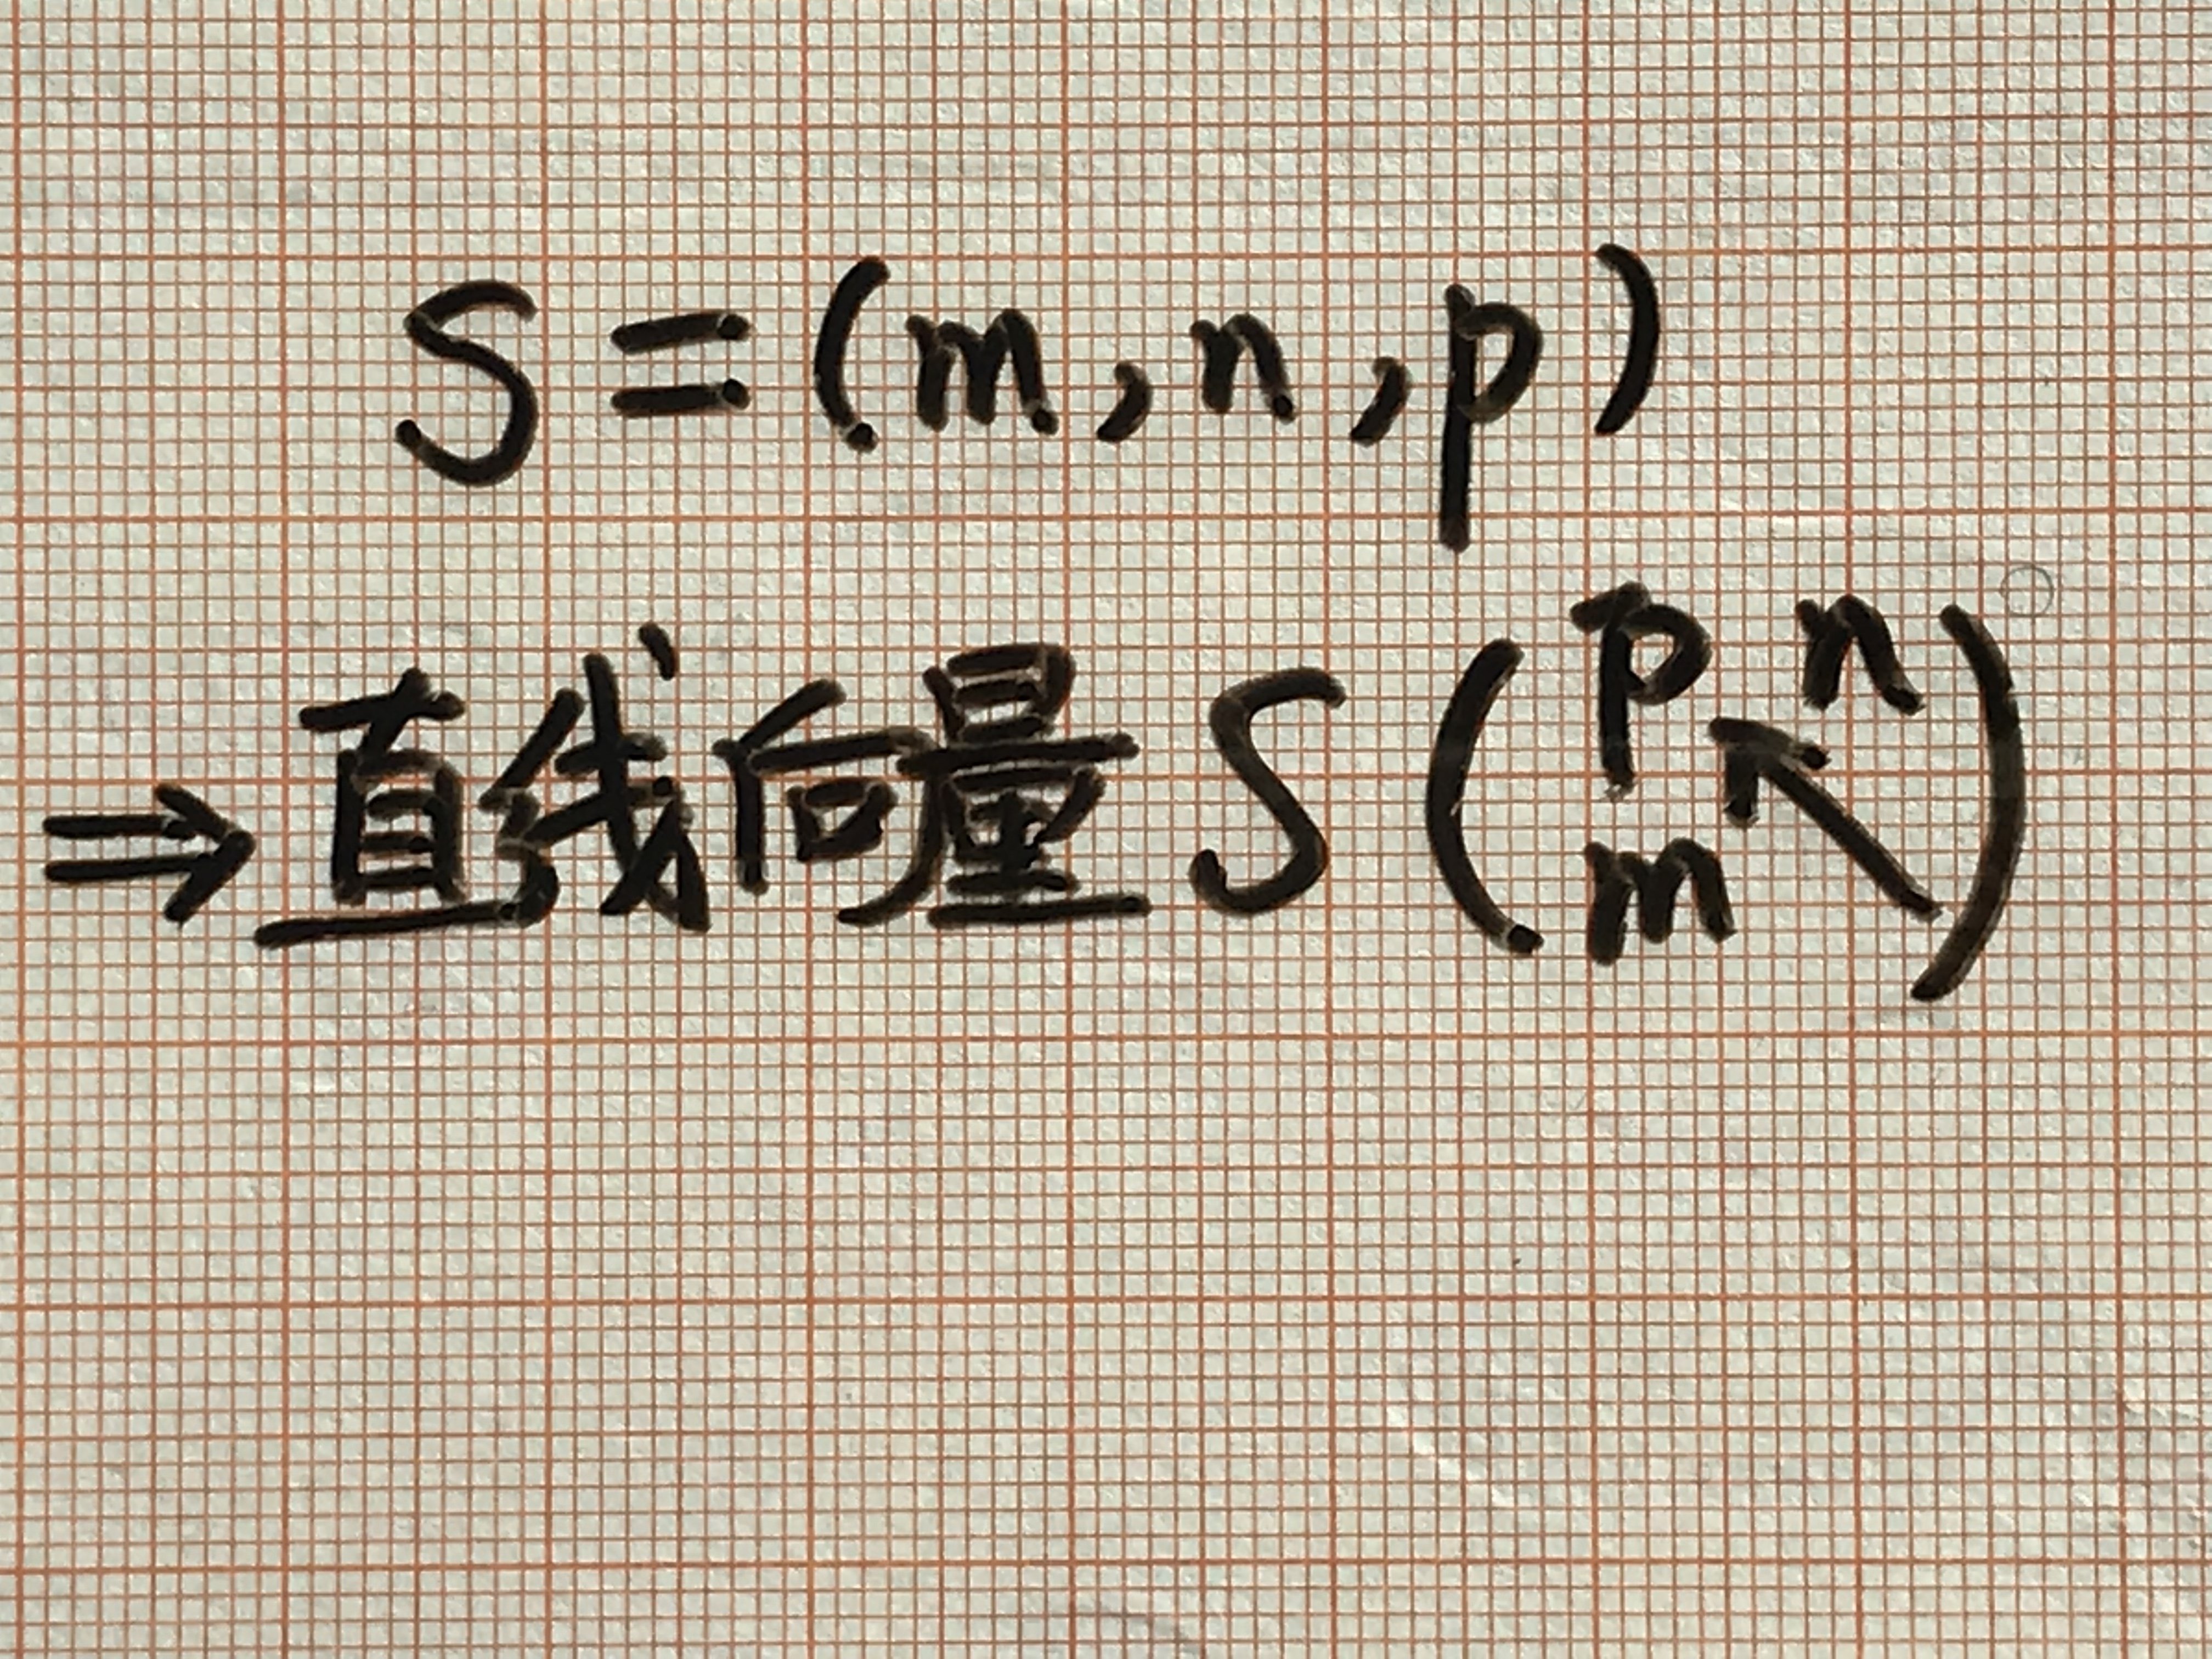 S=(m,n,p)
⇒直线向量 S(p n
m↖)